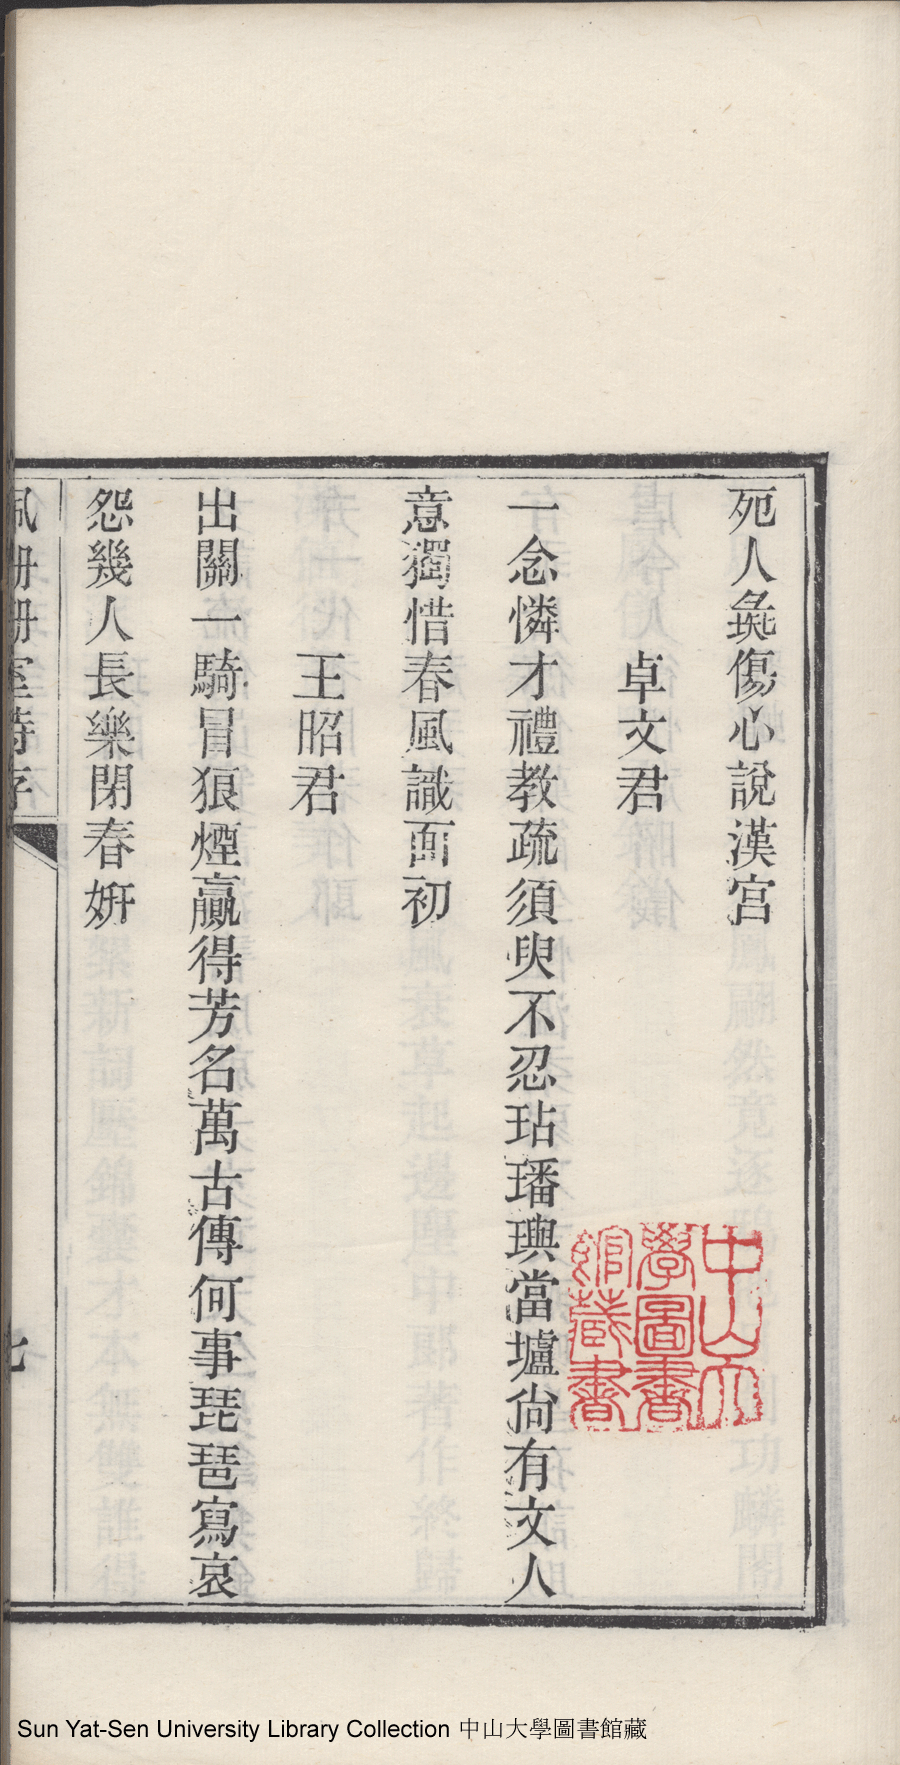 死人彘傷心說漢宮
卓文君
一念憐才禮教疏須臾不忍玷璠璵當壚尙有文人
意獨惜春風識面初
王昭君
出關一騎冒狼煙贏得芳名萬古傳何事琵琶寫哀
怨幾人長樂閉春妍
珮珊珊室詩存
七
中山大
學圖書
館藏書
Sun Yat-Sen University Library Collection 中山大學圖書館藏